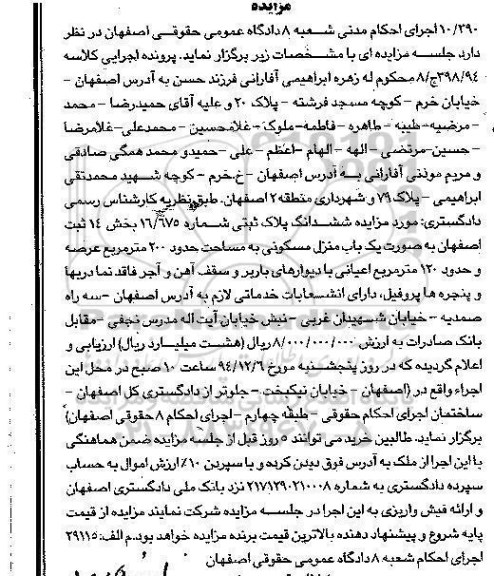 مزایده
۱۰/۳۹۰ اجرای احکام مدنی شعبه ۸ دادگاه عمومی حقوقی اصفهان در نظر
دارد جلسه مزایده ای با مشخصات زیر برگزار نماید. پرونده اجرایی کلاسه
۳۹۸/۹۴ج/۸ محکوم له زهره ابراهیمی آفارانی فرزند حسن به آدرس اصفهان –
خیابان خرم – کوچه مسجد فرشته – پلاک ۲۰ و علیه آقای حمیدرضا – محمد
– مرضیه – طیبه – طاهره – فاطمه – ملوک – غلامحسین – محمدعلی – غلامرضا
– حسین – مرتضی – الهه – الهام – اعظم – علی – حمید و محمد همگی صادقی
و مریم موذنی آفارانی به آدرس اصفهان – خ خرم – کوچه شهید محمدتقی
ابراهیمی – پلاک ۷۹ و شهرداری منطقه ۲ اصفهان. طبق نظریه کارشناس رسمی
دادگستری: مورد مزایده ششدانگ پلاک ثبتی شماره ۱۶/۶۷۵ بخش ۱۴ ثبت
اصفهان به صورت یک باب منزل مسکونی به مساحت حدود ۲۰۰ مترمربع عرصه
و حدود ۱۲۰ مترمربع اعیانی با دیوارهای باربر و سقف آهن و آجر فاقد نما دربها
و پنجره ها پروفیل، دارای انشعابات خدماتی لازم به آدرس اصفهان – سه راه
صمدیه – خیابان شهیدان غربی – نبش خیابان آیت اله مدرس نجفی – مقابل
بانک صادرات به ارزش ۸/۰۰۰/۰۰۰/۰۰۰ ریال (هشت میلیارد ریال) ارزیابی و
اعلام گردیده که در روز پنجشنبه مورخ ۹۴/۱۲/۶ ساعت ۱۰ صبح در محل این
اجراء واقع در (اصفهان – خیابان نیکبخت – جلوتر از دادگستری کل اصفهان –
ساختمان اجرای احکام حقوقی – طبقه چهارم – اجرای احکام ۸ حقوقی اصفهان)
برگزار نماید. طالبین خرید می توانند ۵ روز قبل از جلسه مزایده ضمن هماهنگی
با این اجرا از ملک به آدرس فوق دیدن کرده و با سپردن ۱۰٪ ارزش اموال به حساب
سپرده دادگستری به شماره ۲۱۷۱۲۹۰۲۱۰۰۰۸ نزد بانک ملی دادگستری اصفهان
و ارائه فیش واریزی به این اجرا در جلسه مزایده شرکت نمایند مزایده از قیمت
پایه شروع و پیشنهاد دهنده بالاترین قیمت برنده مزایده خواهد بود. م الف: ۲۹۱۱۵
اجرای احکام شعبه ۸ دادگاه عمومی حقوقی اصفهان